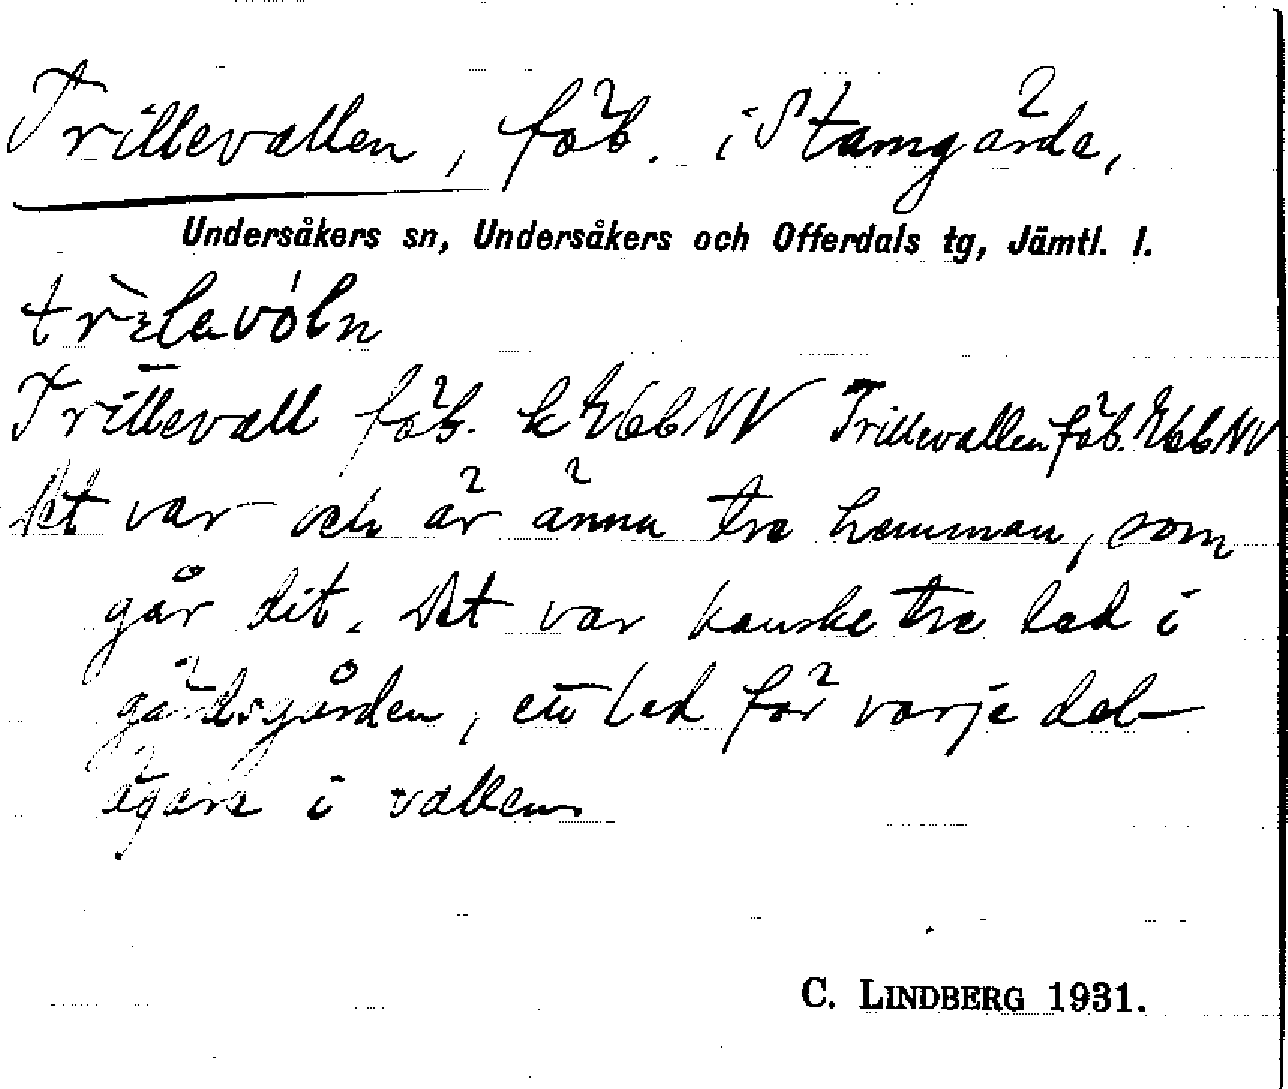 Trillevallen, fäb. i Stamgärde,
Undersåkers sn, Undersåkers och Offerdals tg, Jämtl. l.
Trillevall fäb. k E66NV Trillevallen fäb. E66NV
Det var och är ännu tre hemman, som
går dit. Det var kanske tre led i
gärdsgården, ett led för varje del-
ägare i vallen
C. LINDBERG 1931.